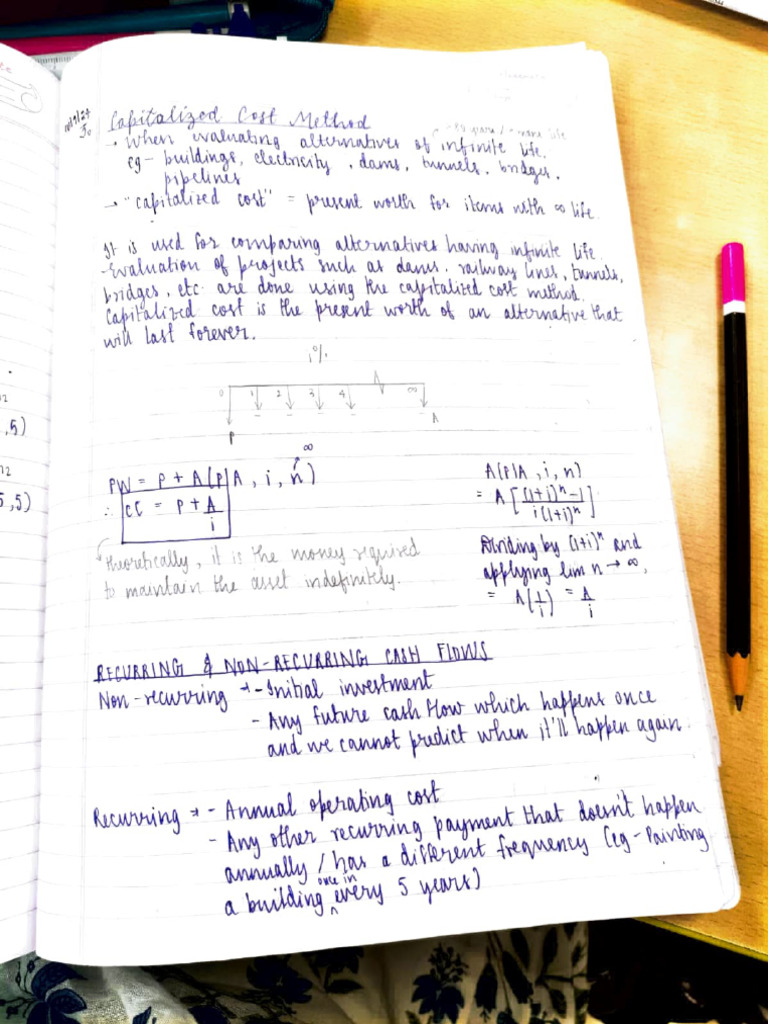 Capitalized Cost Method
→ when evaluating alternatives of infinite life.
eg - buildings, electricity, dams, tunnels, bridges,
pipelines
→ "capitalized cost" = present worth for items with ∞ life.
It is used for comparing alternatives having infinite life.
- Evaluation of projects such as dams, railway lines, tunnels,
bridges, etc are done using the capitalized cost method.
Capitalized cost is the present worth of an alternative that
will last forever.
i%
0 1 2 3 4 ∞
P A
∞
PW = P + A(P|A, i, n)
∴ CC = P + A/i
theoretically, it is the money required
to maintain the asset indefinitely.
A(P|A, i, n)
= A[(1+i)^n - 1 / i(1+i)^n]
Dividing by (1+i)^n and
applying lim n → ∞,
= A(1/i) = A/i
RECURRING & NON-RECURRING CASH FLOWS
Non-recurring → - Initial investment
- Any future cash flow which happens once
and we cannot predict when it'll happen again.
Recurring → - Annual operating cost
- Any other recurring payment that doesn't happen
annually / has a different frequency (eg - Painting
a building once in every 5 years)
,5)
5,5)